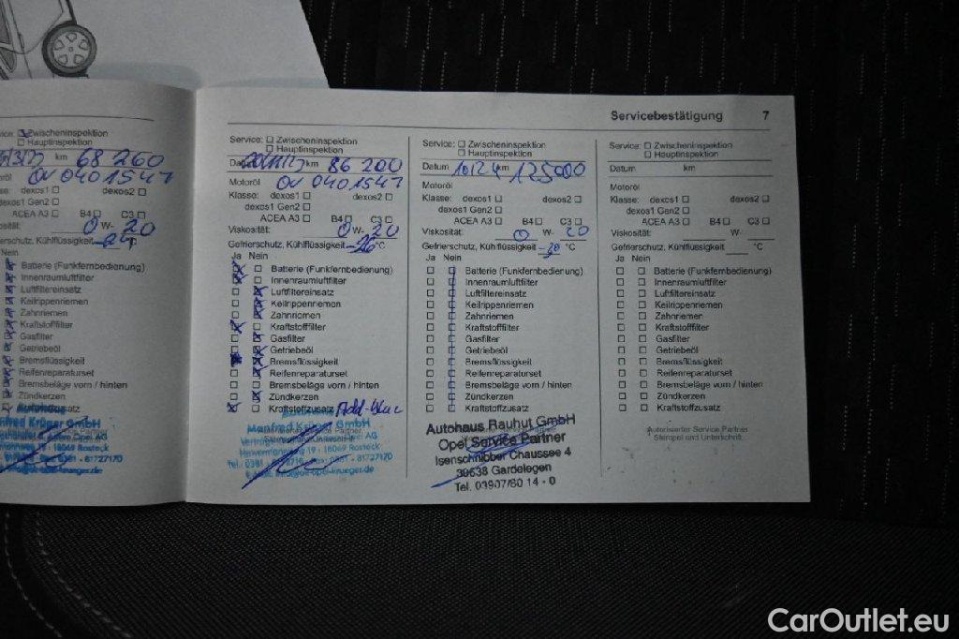 Servicebestätigung 7
Zwischeninspektion
Hauptinspektion
km 68 260
OV 0401547
dexos1 dexos2
dexos1 Gen2
ACEA A3 B4 C3
0 W- 20
Gefrierschutz, Kühlflüssigkeit
Nein
Batterie (Funkfernbedienung)
Innenraumluftfilter
Luftfiltereinsatz
Keilrippenriemen
Zahnriemen
Kraftstofffilter
Gasfilter
Getriebeöl
Bremsflüssigkeit
Reifenreparaturset
Bremsbeläge vorn / hinten
Zündkerzen
Autohaus
Manfred Krüger GmbH
Service: Zwischeninspektion
Hauptinspektion
km 86 200
Motoröl OV 0401547
Klasse: dexos1 dexos2
dexos1 Gen2
ACEA A3 B4 C3
Viskosität: 0 W- 20
Gefrierschutz, Kühlflüssigkeit -26 °C
Ja Nein
Batterie (Funkfernbedienung)
Innenraumluftfilter
Luftfiltereinsatz
Keilrippenriemen
Zahnriemen
Kraftstofffilter
Gasfilter
Getriebeöl
Bremsflüssigkeit
Reifenreparaturset
Bremsbeläge vorn / hinten
Zündkerzen
Kraftstoffzusatz Add-blue
Manfred Krüger GmbH
Service: Zwischeninspektion
Hauptinspektion
Datum 10.12.4 km 135000
Motoröl:
Klasse: dexos1 dexos2
dexos1 Gen2
ACEA A3 B4 C3
Viskosität: 0 W- 20
Gefrierschutz, Kühlflüssigkeit -30 °C
Ja Nein
Batterie (Funkfernbedienung)
Innenraumluftfilter
Luftfiltereinsatz
Keilrippenriemen
Zahnriemen
Kraftstofffilter
Gasfilter
Getriebeöl
Bremsflüssigkeit
Reifenreparaturset
Bremsbeläge vorn / hinten
Zündkerzen
Kraftstoffzusatz
Autohaus Rauhut GmbH
Opel Service Partner
Isenschnibber Chaussee 4
39638 Gardelegen
Tel. 03907/80 14 - 0
Service: Zwischeninspektion
Hauptinspektion
Datum km
Motoröl:
Klasse: dexos1 dexos2
dexos1 Gen2
ACEA A3 B4 C3
Viskosität: W-
Gefrierschutz, Kühlflüssigkeit °C
Ja Nein
Batterie (Funkfernbedienung)
Innenraumluftfilter
Luftfiltereinsatz
Keilrippenriemen
Zahnriemen
Kraftstofffilter
Gasfilter
Getriebeöl
Bremsflüssigkeit
Reifenreparaturset
Bremsbeläge vorn / hinten
Zündkerzen
Kraftstoffzusatz
Autorisierter Service Partner
Stempel und Unterschrift
CarOutlet.eu